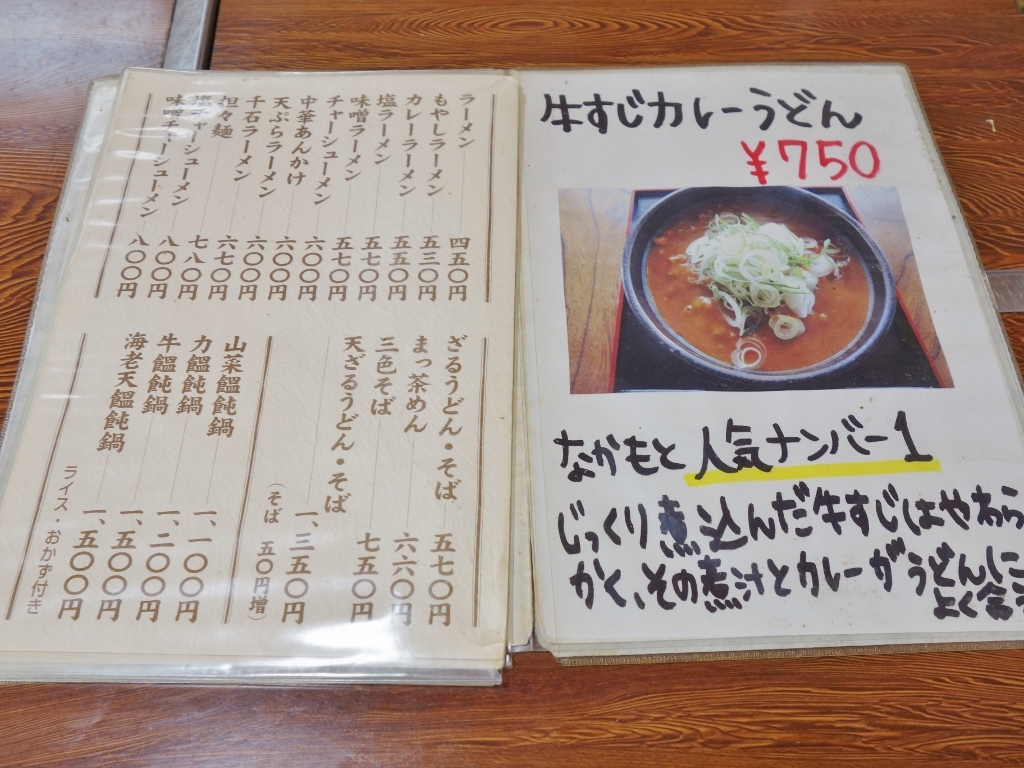 ラーメン 四五〇円
もやしラーメン 五三〇円
カレーラーメン 五五〇円
塩ラーメン 五七〇円
味噌ラーメン 五七〇円
チャーシューメン 六〇〇円
中華あんかけ 六〇〇円
天ぷらラーメン 六〇〇円
千石ラーメン 六七〇円
担々麺 七八〇円
塩チャーシューメン 八〇〇円
味噌チャーシューメン 八〇〇円
ざるうどん・そば 五七〇円
まっ茶めん 六六〇円
三色そば 七五〇円
天ざるうどん・そば 一、三五〇円
（そば 五〇円増）
山菜饂飩鍋 一、一〇〇円
力饂飩鍋 一、二〇〇円
牛饂飩鍋 一、五〇〇円
海老天饂飩鍋 一、五〇〇円
ライス・おかず付き
牛すじカレーうどん
¥750
なかもと人気ナンバー1
じっくり煮込んだ牛すじはやわら
かく、その煮汁とカレーがうどんに
よく合う